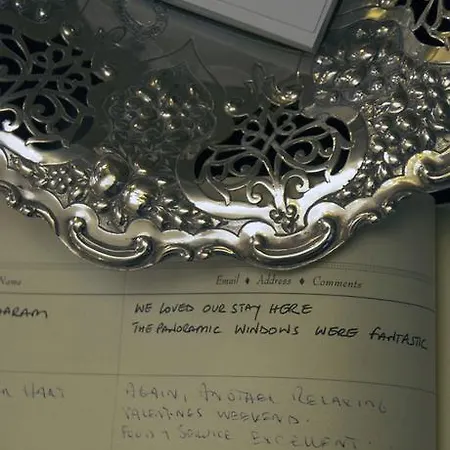 Name Email ♦ Address ♦ Comments
ARAM WE LOVED OUR STAY HERE
THE PANORAMIC WINDOWS WERE FANTASTIC
HART AGAIN, ANOTHER RELAXING
VALENTINES WEEKEND.
FOOD & SERVICE EXCELLENT.